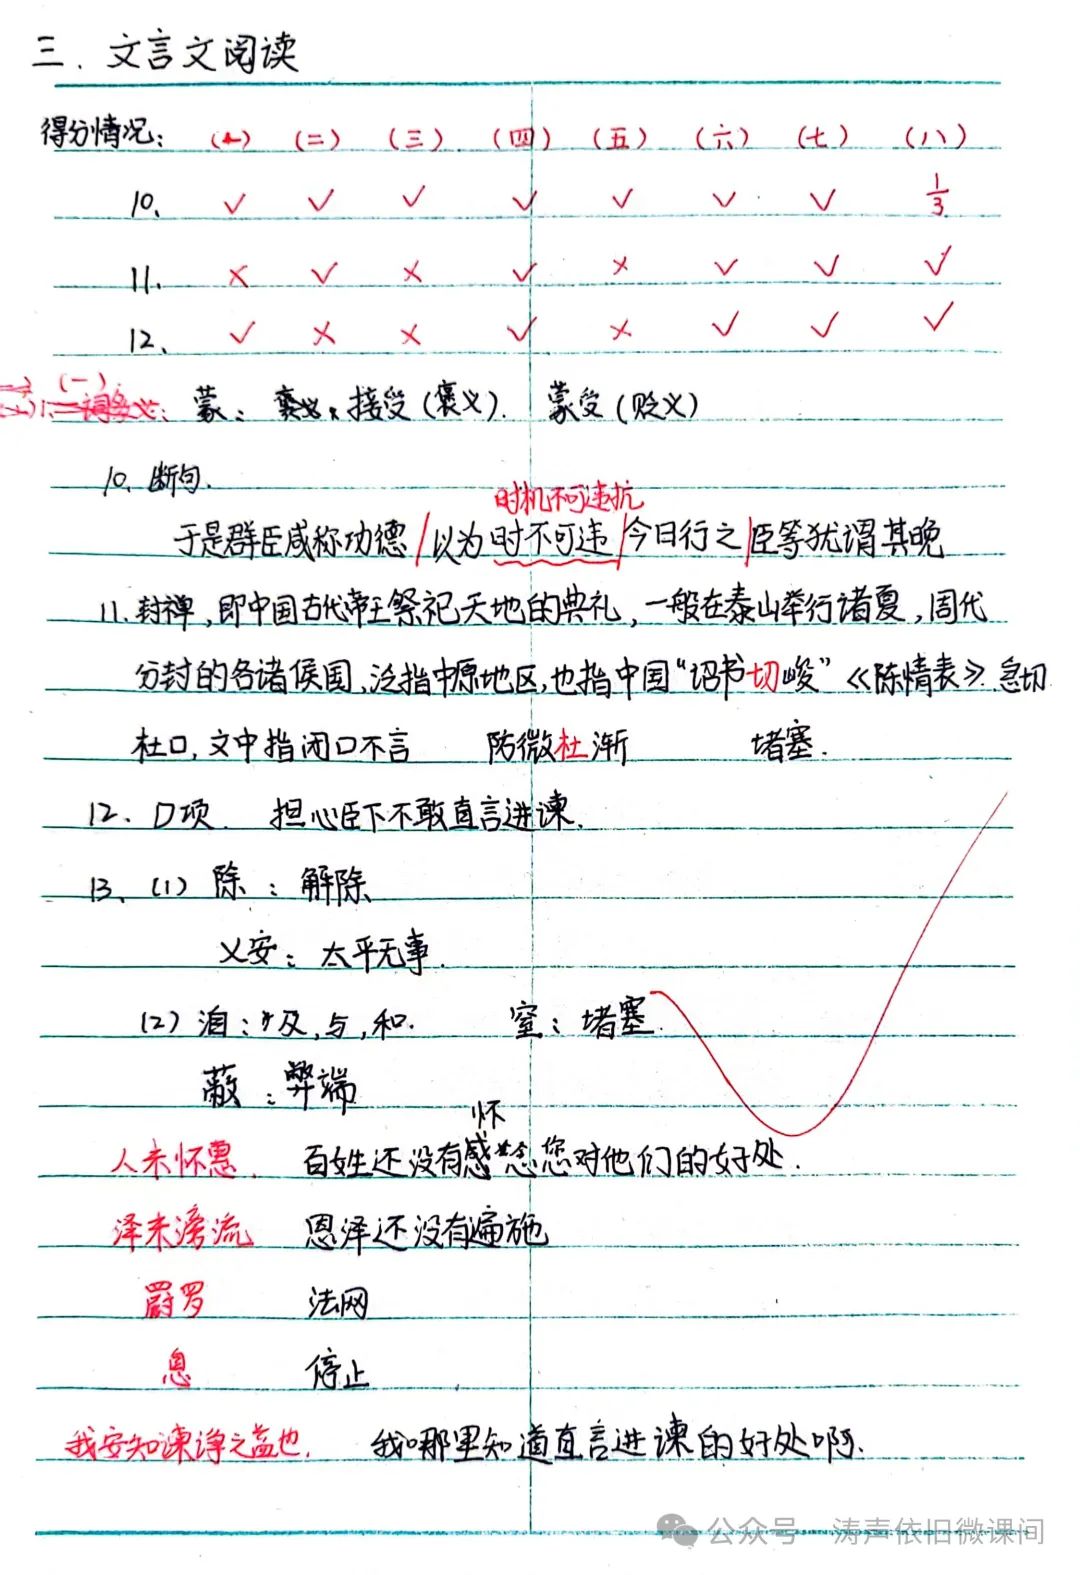 三．文言文阅读
得分情况： （一） （二） （三） （四） （五） （六） （七） （八）
10. ✓ ✓ ✓ ✓ ✓ ✓ ✓ 1/3
11. × ✓ × ✓ × ✓ ✓ ✓
12. ✓ × × ✓ × ✓ ✓ ✓
（一） 蒙：接受（褒义）. 蒙受（贬义）
10. 断句.
时机不可违抗
于是群臣咸称功德/以为时不可违/今日行之/臣等犹谓其晚
11. 封禅，即中国古代帝王祭祀天地的典礼，一般在泰山举行诸夏，周代
分封的各诸侯国，泛指中原地区，也指中国“诏书切峻”《陈情表》急切
杜口，文中指闭口不言 防微杜渐 堵塞.
12. D项. 担心臣下不敢直言进谏.
13.（1）除：解除
乂安：太平无事.
（2）洎：及，与，和. 窒：堵塞.
蔽：弊端
怀
人未怀惠. 百姓还没有感念您对他们的好处.
泽未滂流 恩泽还没有遍施
罻罗 法网
息 停止
我安知谏诤之益也. 我哪里知道直言进谏的好处啊.
公众号 · 涛声依旧微课间